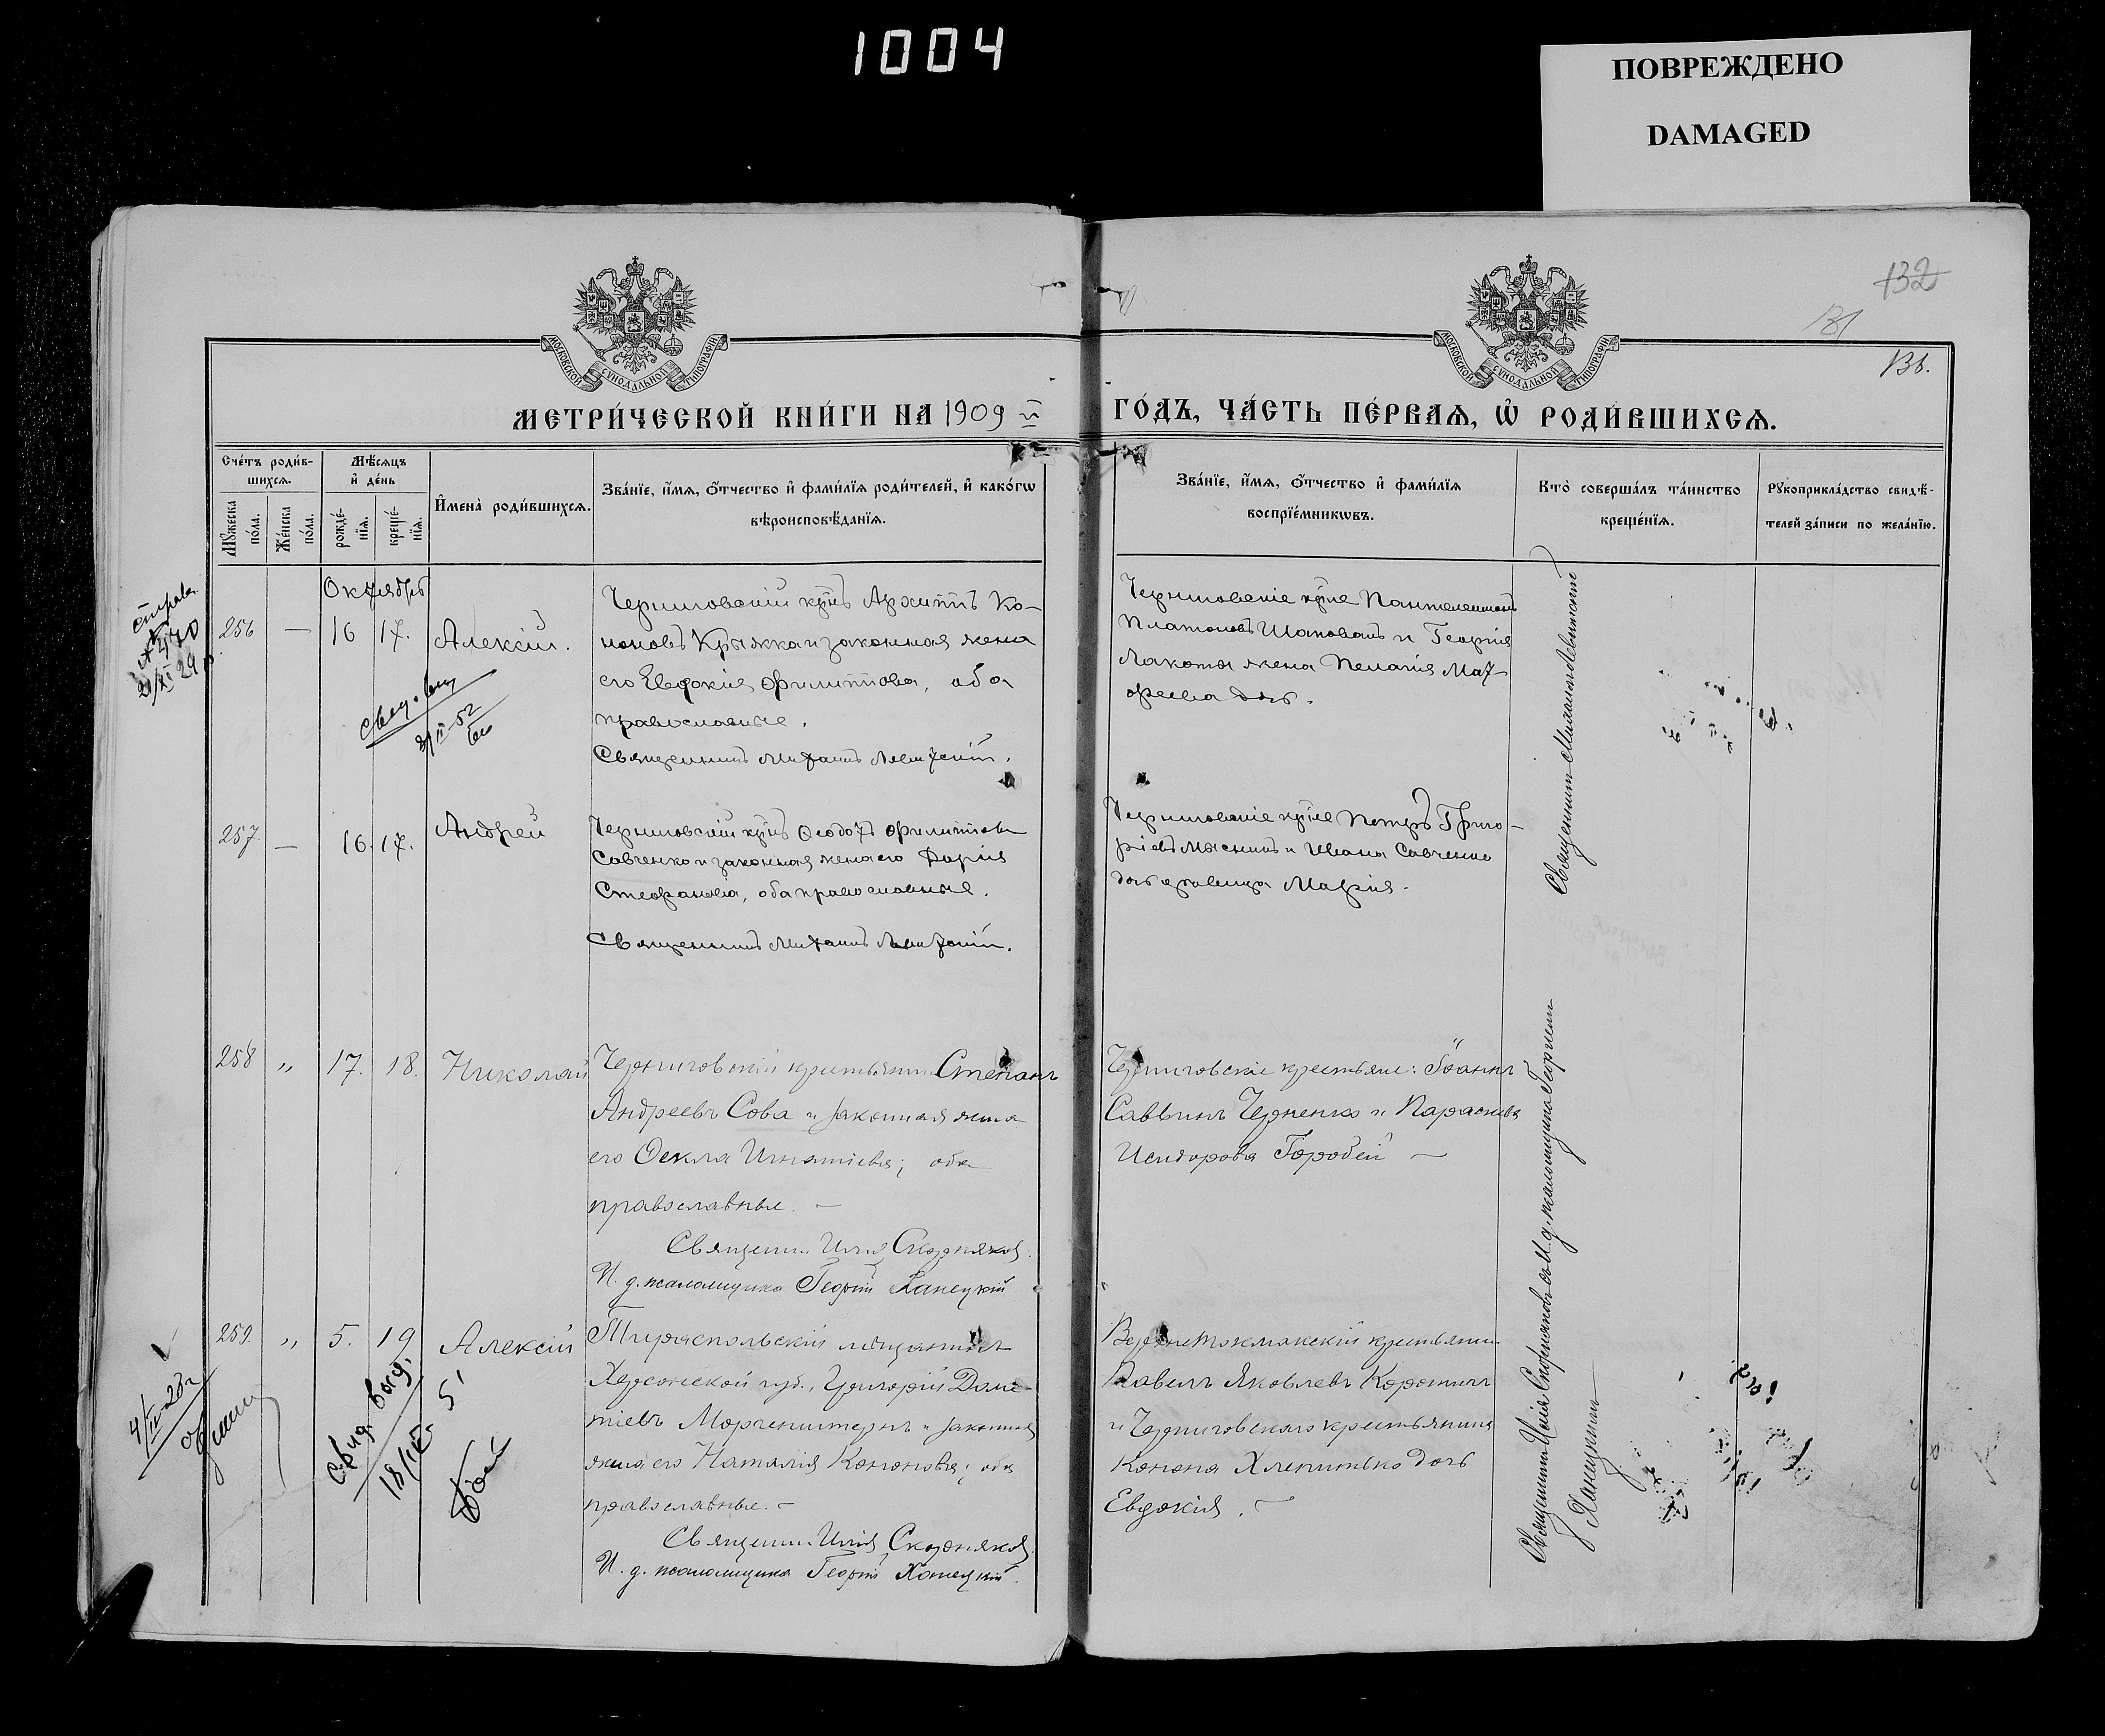 1004
ПОВРЕЖДЕНО
DAMAGED
132
131
136.
МОСКОВСКОЙ СѴНОДАЛЬНОЙ ТИПОГРАФІИ
МОСКОВСКОЙ СѴНОДАЛЬНОЙ ТИПОГРАФІИ
МЕТРИ́ЧЕСКОЙ КНИ́ГИ НА 1909 й
ГО́ДЪ, ЧА́СТЬ ПЕ́РВАѦ, Ѡ҆ РОДИ́ВШИХСѦ.
Сче́тъ роди́в-
шихсѧ.
Мꙋ́жеска по́ла.
Же́нска по́ла.
Мѣ́сѧцъ
и҆ де́нь
рожде́-
нїѧ.
креще́-
нїѧ.
И҆мена̀ роди́вшихсѧ.
Зва́нїе, и҆́мѧ, ѻ҆́тчество и҆ фами́лїѧ роди́телей, и҆ како́гѡ
вѣроисповѣ́данїѧ.
Зва́нїе, и҆́мѧ, ѻ҆́тчество и҆ фами́лїѧ
воспрїе́мникѡвъ.
Кто̀ соверша́лъ та́инство
креще́нїѧ.
Рꙋкоприкла́дство свидѣ́-
телей за́писи по жела́нїю.
Октябрь
256 — 16 17. Алексій.
Черниговскій кр̃нъ Архиппъ Ко-
новъ Крыжка и законная жена
его Евдокия Филиппова, оба
православные.
Священникъ Михаилъ Левитскій.
Черниговскіе кр̃не Пантелеимонъ
Платоновъ Шаповалъ и Георгія
Лакота жена Пелагія Мат-
ѳеева дочь.
Священникъ Михаилъ Левитскій
257. — 16. 17. Андрей
Черниговскій кр̃нъ Ѳеодотъ Филипповъ
Савченко и законная жена его Дарія
Стефанова, оба православные.
Священникъ Михаилъ Левитскій.
Черниговскіе кр̃не Петръ Григо-
ріевъ Мысникъ и Ивана Савченко
дочь девица Марія.
258 „ 17. 18. Николай
Черниговскій крестьянинъ Степанъ
Андреевъ Сова и законная жена
его Ѳекла Игнатіева; оба
православные. —
Священн. Илія Скорняковъ.
И. д. псаломщика Георгій Ханецкій
Черниговскіе крестьяне: Іоаннъ
Саввинъ Черненко и Параскева
Исидорова Горобей —
259. „ 5. 19 Алексій
Тираспольскій мѣщанинъ
Херсонской губ., Григорій Доме-
тіевъ Моргенштернъ и законная
жена его Наталія Кононова; оба
православные. —
Священн. Илія Скорняковъ.
И. д. псаломщика Георгій Ханецкій.
Верхнетокмакскій крестьянинъ
Павелъ Яковлевъ Коротичъ
и Черниговскаго крестьянина
Конона Хлепитько дочь
Евдокія. —
Священникъ Илія Скорняковъ съ И. д. псаломщика Георгіемъ
Ханецкимъ